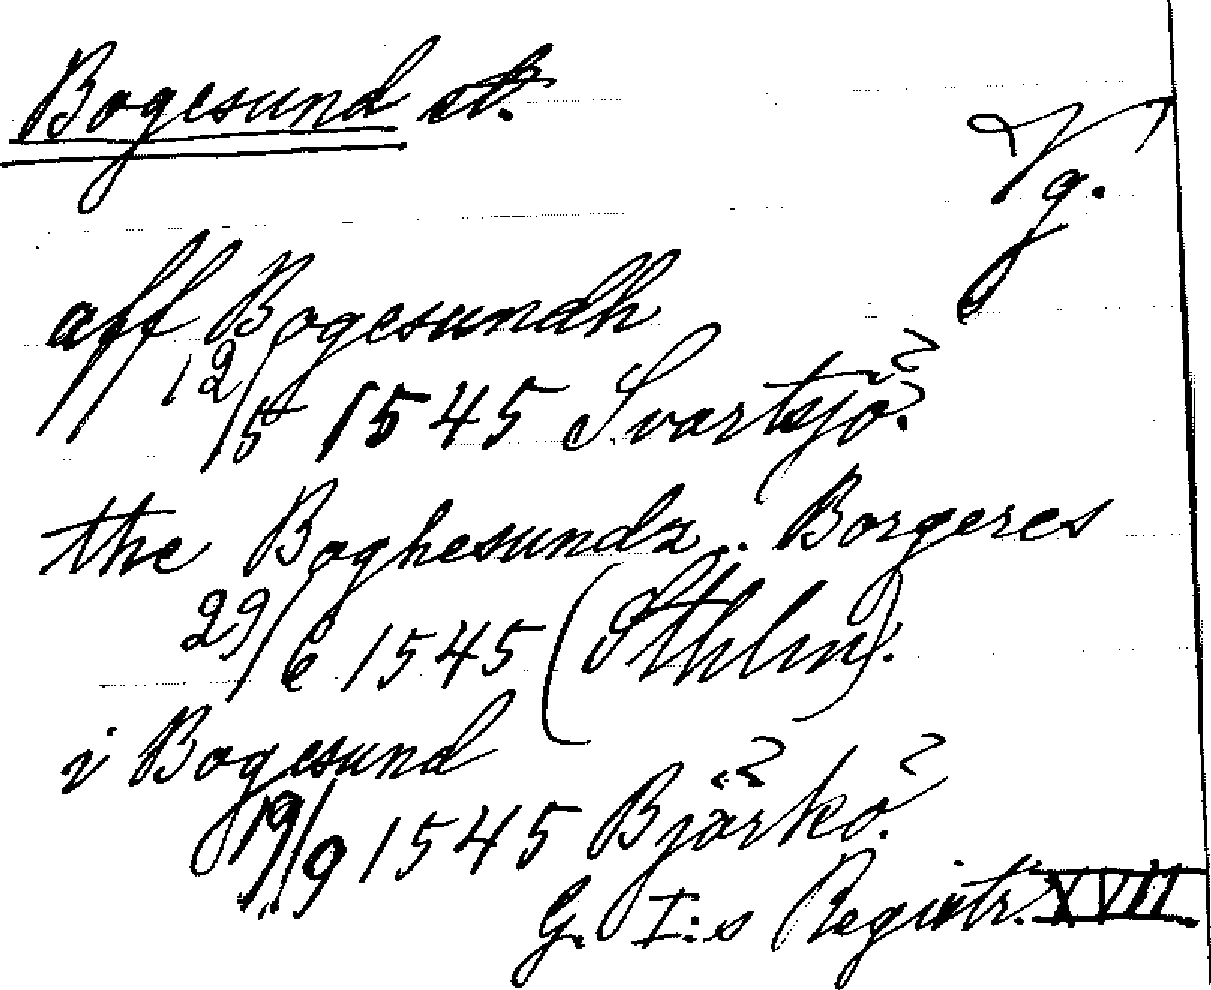 Bogesund st.
Vg.
aff Bogesundh
12/5 1545 Svartsjö.
the Boghesundz. Borgeres
29/6 1545 (Sthlm).
i Bogesund
19/9 1545 Bjärkö.
G. I:s Registr. XVII.